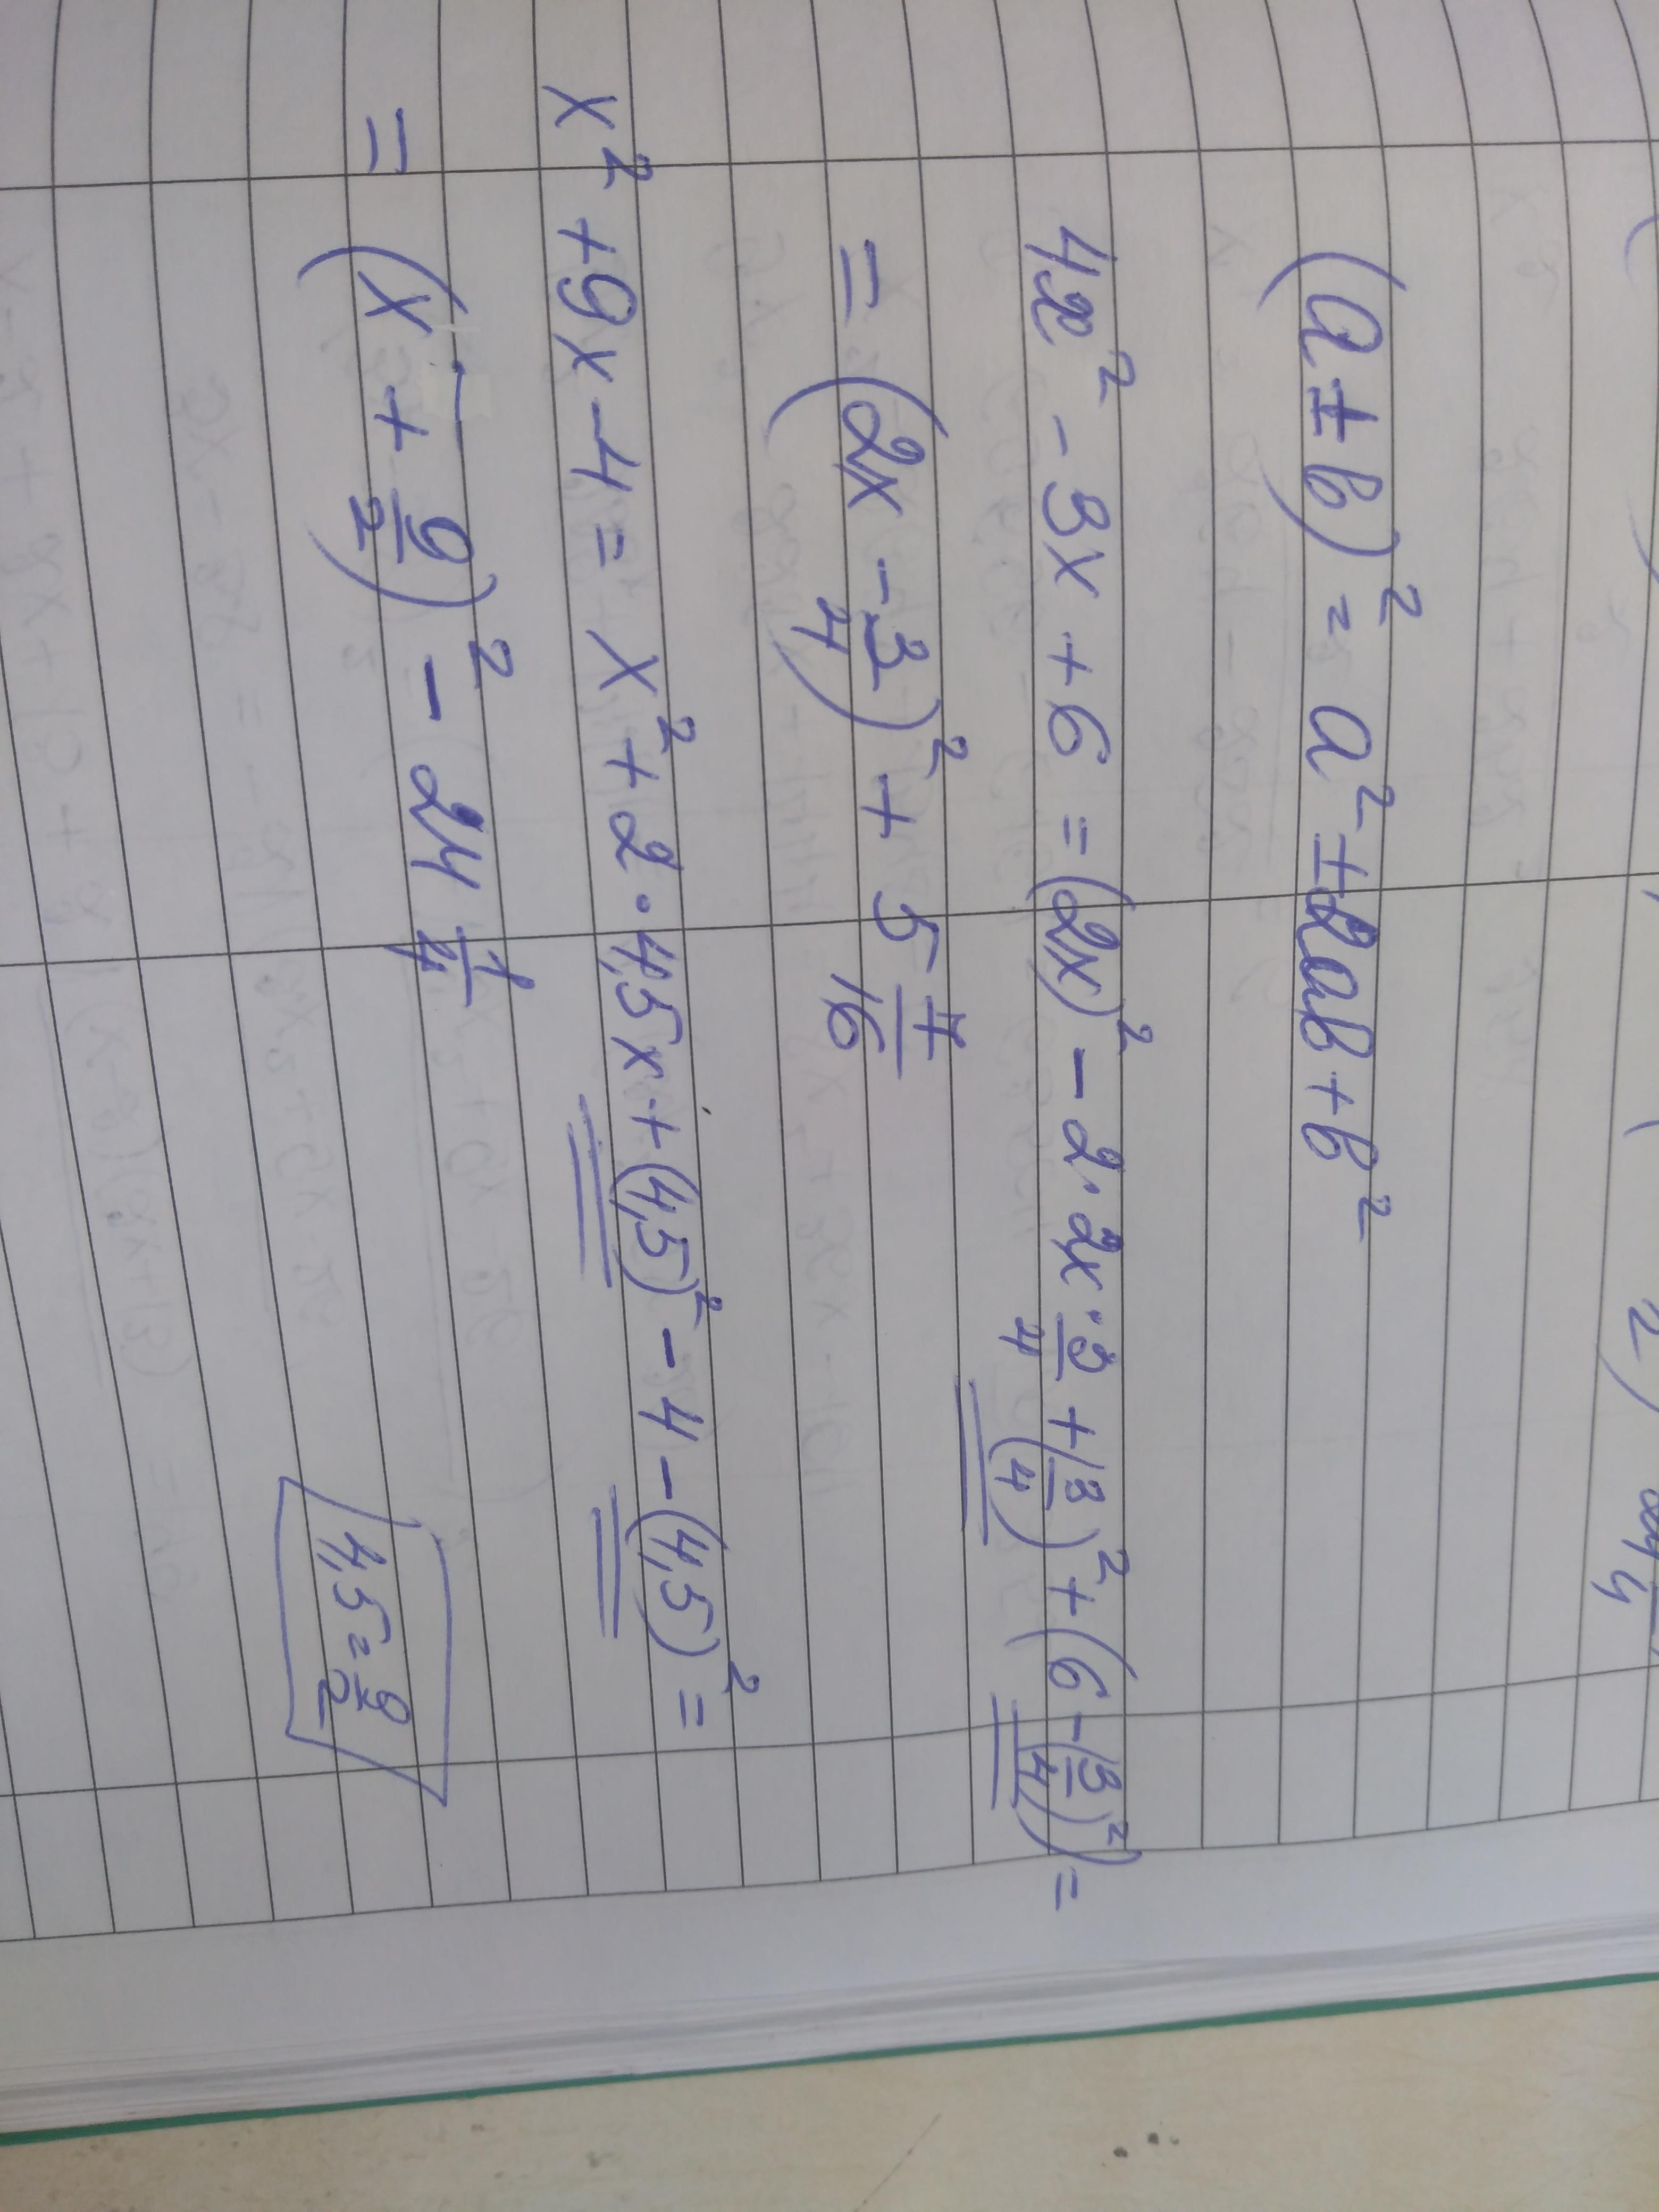 (a ± b)² = a² ± 2ab + b²
4x² - 3x + 6 = (2x)² - 2·2x·3/4 + (3/4)² + (6 - (3/4)²) =
= (2x - 3/4)² + 5 7/16
x² + 9x - 4 = x² + 2·4,5x + (4,5)² - 4 - (4,5)² =
= (x + 9/2)² - 24 1/4
4,5 = 9/2